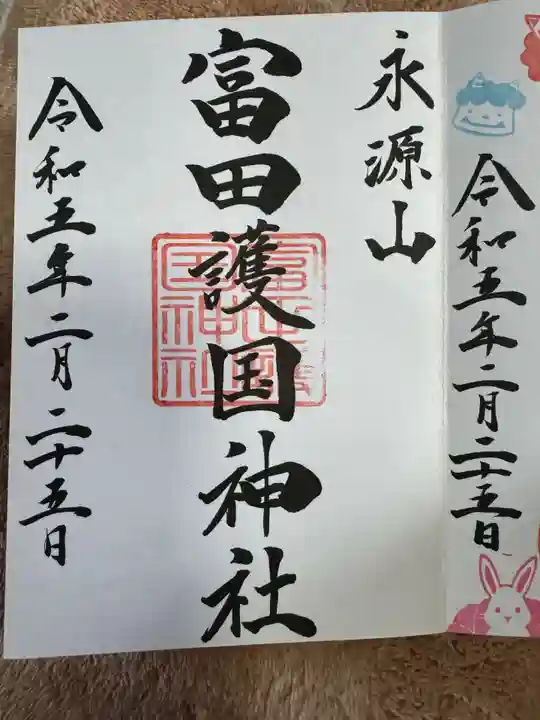 令和五年二月二十五日
永源山
富田護国神社
富田護国神社
令和五年二月二十五日